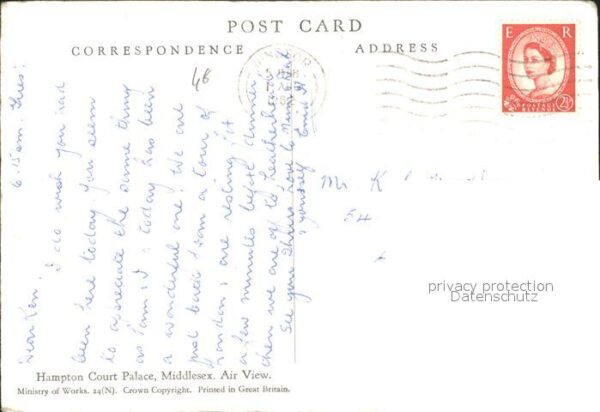 POST CARD
CORRESPONDENCE
ADDRESS
E R
2½
4B
6.15 pm. Thurs:
Dear Ken.
I do wish you had
been here today. You seem
to appreciate the same thing
as Pam & I. today has been
a wonderful one. We are
just back from a tour of
London & are resting for
a few minutes before dinner
then we are off to
See you Love to
& yourself
Mr. K
54
privacy protection
Datenschutz
Hampton Court Palace, Middlesex. Air View.
Ministry of Works. 24(N). Crown Copyright. Printed in Great Britain.